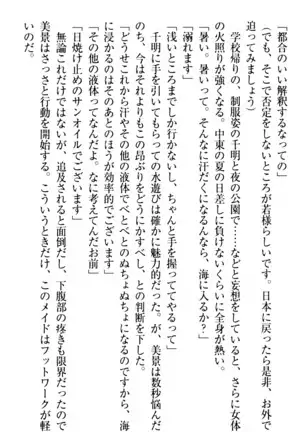 「都合のいい解釈するなっての」
（でも、そこで否定をしないところが若様らしいです。日本に戻ったら是非、お外で
迫ってみましょう）
　学校帰りの、制服姿の千明と夜の公園で……などと妄想をしていると、さらに女体
の火照りが増してきた。中東の夏の日差しに負けないくらいに全身が熱い。
「暑い。暑いって。そんなに汗だくになるんなら、海に入るか？」
「溺れます」
「浅いところまでしか行かないし、ちゃんと手を握っててやるって」
　千明に手を引いてもらっての水遊びは確かに魅力的だった。が、美景は数秒悩んだ
のち、今はそれよりもこの昂ぶりをどうにかすべし、との判断を下した。
「どうせこれから汗やその他の液体でべとべとのぬちょぬちょになるのですから、海
に浸かるのはそのあとのほうが効率的でございます」
「その他の液体ってなんだよ。なに考えてんだお前」
「日焼け止めのサンオイルでございます」
　無論これだけではないが、追及されると面倒だし、下腹部の疼きも限界だったので
美景はさっさと行動を開始する。こういうときだけ、このメイドはフットワークが軽
いのだ。